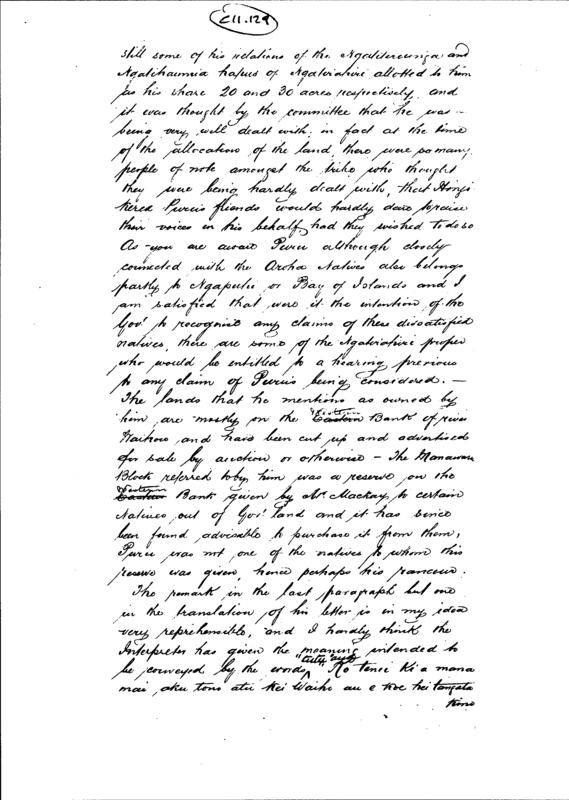 C11.129
still some of his relations of the Ngatiterecunga and
Ngatihaumia hapus of Ngatiriahivi allotted to him
as his share 20 and 30 acres respectively, and
it was thought by the committee that he was
being very well dealt with; in fact at the time
of the allocation of the land, there were so many
people of note amongst the tribe who thought
they were being hardly dealt with, that
Purcis friends would hardly dare to raise
their voices in his behalf, had they wished to do so
As you are aware Purui although closely
connected with the Aroha Natives also belongs
partly to Ngapuhi or Bay of Islands and I
am satisfied that were it the intention of the
Govt to recognise any claims of these dissatisfied
natives, there are some of the proper
who would be entitled to a hearing previous
to any claim of Puruis being considered. —
The lands that he mentions as owned by
him are mostly on the Eastern Western Bank of river
Waihou and have been cut up and advertised
for sale by auction or otherwise - The Manawaru
Block referred to by him was a reserve on the
Eastern Western Bank given by Mr Mackay to certain
Natives out of Govt land and it has since
been found advisable to purchase it from them,
Purui was not one of the natives to whom this
reserve was given, hence perhaps his rancour.
The remark in the last paragraph but one
in the translation of his letter is in my idea
very reprehensible, and I hardly think the
Interpreter has given the meaning intended to
be conveyed by the words Ko tenei kia mana
mai, aku tono atu kei Waihi au e noe hei tangata